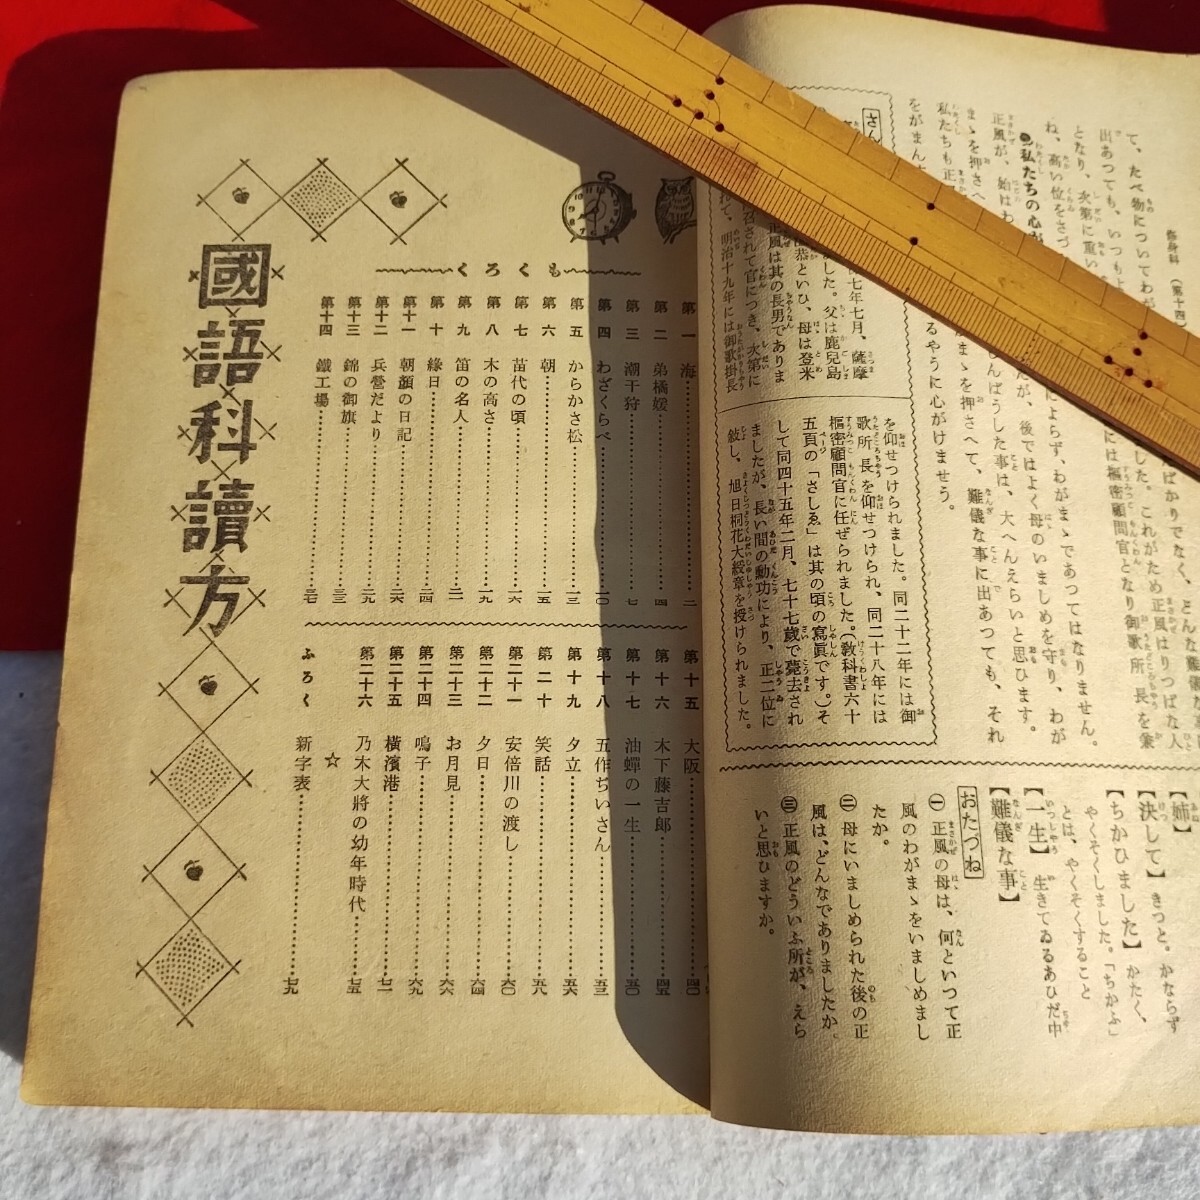 修身科(第十四)
て、たべ物についてわが
出あつても、いつもよ
となり、次第に重い
ね、高い位をさづ
私たちの心が
正風が、始はわ
まゝを押さへ
私たちも正
をがまん
ばかりでなく、どんな難儀な
ました。これがため正風はりつぱな人
には樞密顧問官となり御歌所長を兼
によらず、わがまゝであつてはなりません。
が、後ではよく母のいましめを守り、わが
しんばうした事は、大へんえらいと思ひます。
まゝを押さへて、難儀な事に出あつても、それ
るやうに心がけませう。
七年七月、薩摩
ました。父は鹿兒島
恭といひ、母は登米
正風は其の長男でありま
召されて官につき、次第に
れて、明治十九年には御歌掛長
を仰せつけられました。同二十二年には御
歌所長を仰せつけられ、同二十八年には
樞密顧問官に任ぜられました。(敎科書六十
五頁の「さしゑ」は其の頃の寫眞です。)そ
して同四十五年二月、七十七歳で薨去され
ましたが、長い間の勳功により、正二位に
敍し、旭日桐花大綬章を授けられました。
【姉】
【決して】きつと。かならず
【ちかひました】かたく、
やくそくしました。「ちかふ」
とは、やくそくすること
【一生】生きてゐるあひだ中
【難儀な事】
おたづね
㊀正風の母は、何といつて正
風のわがまゝをいましめまし
たか。
㊁母にいましめられた後の正
風は、どんなでありましたか。
㊂正風のどういふ所が、えら
いと思ひますか。
もくろく
第一 海 二
第二 弟橘媛 四
第三 潮干狩 七
第四 わざくらべ 一〇
第五 からかさ松 一三
第六 朝 一五
第七 苗代の頃 一六
第八 木の高さ 一九
第九 笛の名人 二一
第十 緣日 二四
第十一 朝顏の日記 二六
第十二 兵營だより 二九
第十三 錦の御旗 三三
第十四 鐵工場 三七
第十五 大阪 四〇
第十六 木下藤吉郎 四五
第十七 油蟬の一生 五〇
第十八 五作ぢいさん 五三
第十九 夕立 五六
第二十 笑話 五八
第二十一 安倍川の渡し 六〇
第二十二 夕日 六四
第二十三 お月見 六六
第二十四 鳴子 六九
第二十五 橫濱港 七一
第二十六 乃木大將の幼年時代 七五
☆
ふろく 新字表 七九
國語科讀方